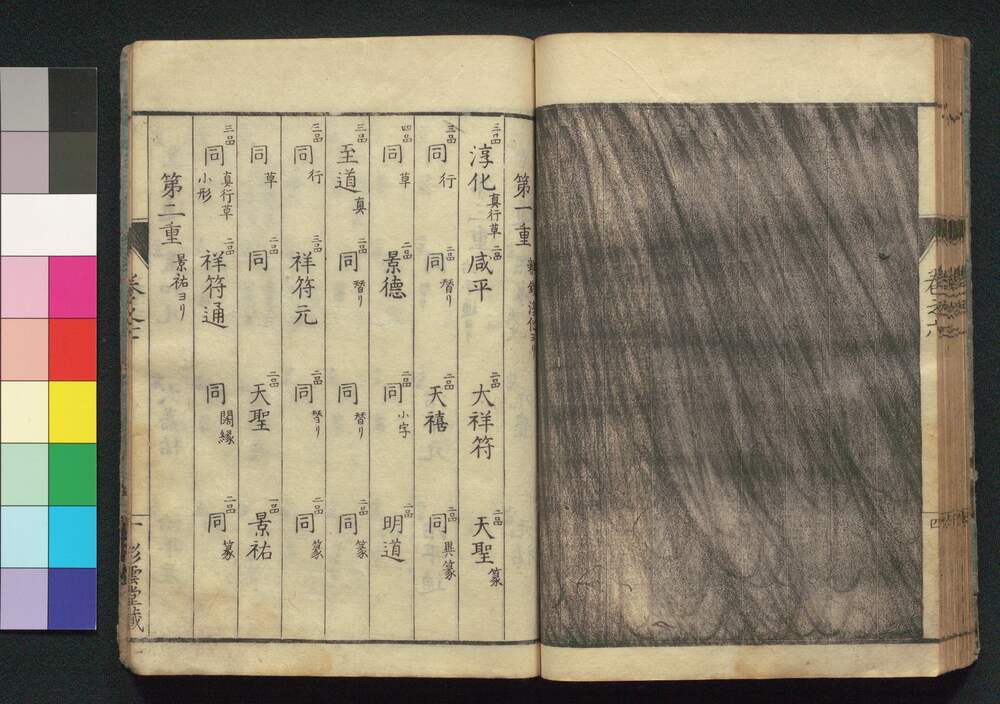 卷之六
四
第一重
三品 淳化 真行草
二品 咸平
二品 大祥符
二品 天聖 篆
三品 同 行
二品 同 替り
二品 天禧
二品 同 異篆
四品 同 草
二品 景德
二品 同 小字
二品 明道
三品 至道 真
二品 同 替り
二品 同 替り
二品 同 篆
三品 同 行
三品 祥符元
二品 同 替り
二品 同 篆
二品 同 草
二品 同
二品 天聖
一品 景祐
三品 同 真行草 小形
二品 祥符通
二品 同 闊縁
二品 同 篆
第二重 景祐ヨリ
彩雲堂藏